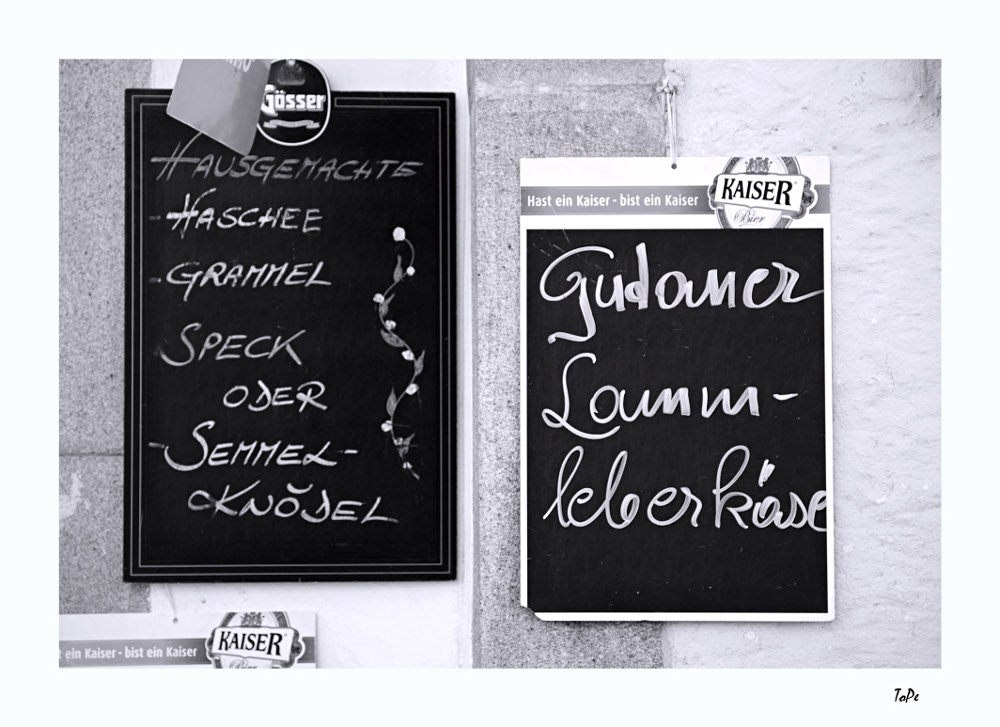 Gösser
HAUSGEMACHTE
- HASCHEE
- GRAMMEL
SPECK
ODER
- SEMMEL-
KNÖDEL
Hast ein Kaiser - bist ein Kaiser
KAISER
Bier
Gudauer
Lamm-
leberkäse
ein Kaiser - bist ein Kaiser
KAISER
Bier
ToPe